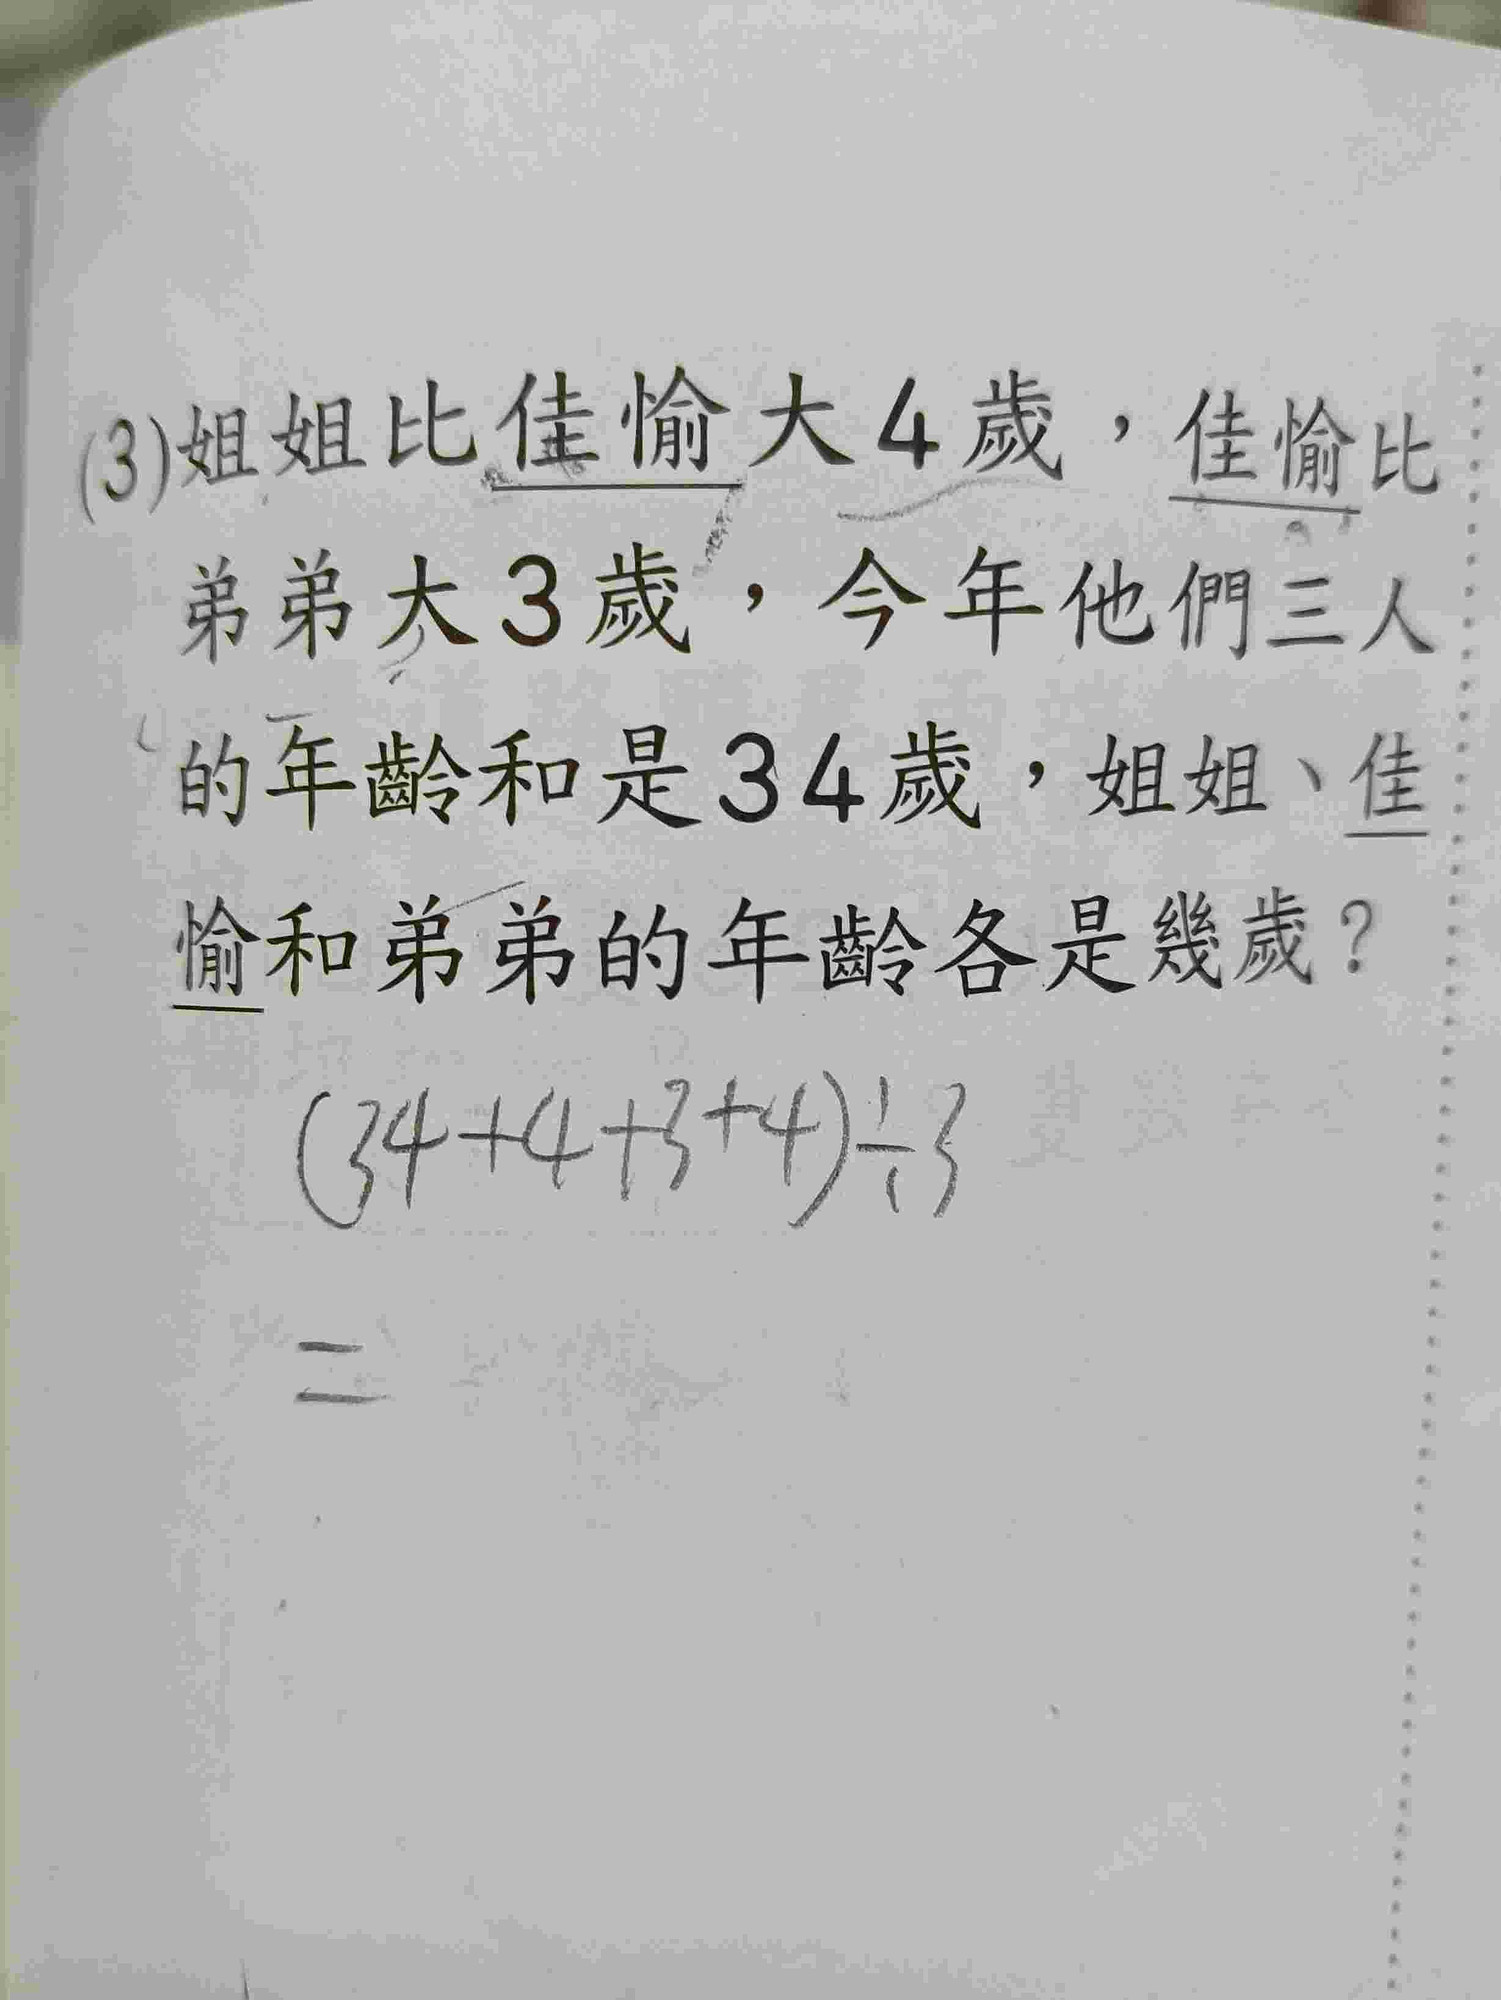 (3)姐姐比佳愉大4歲，佳愉比
弟弟大3歲，今年他們三人
的年齡和是34歲，姐姐、佳
愉和弟弟的年齡各是幾歲？
(34+4+3+4)÷3
=